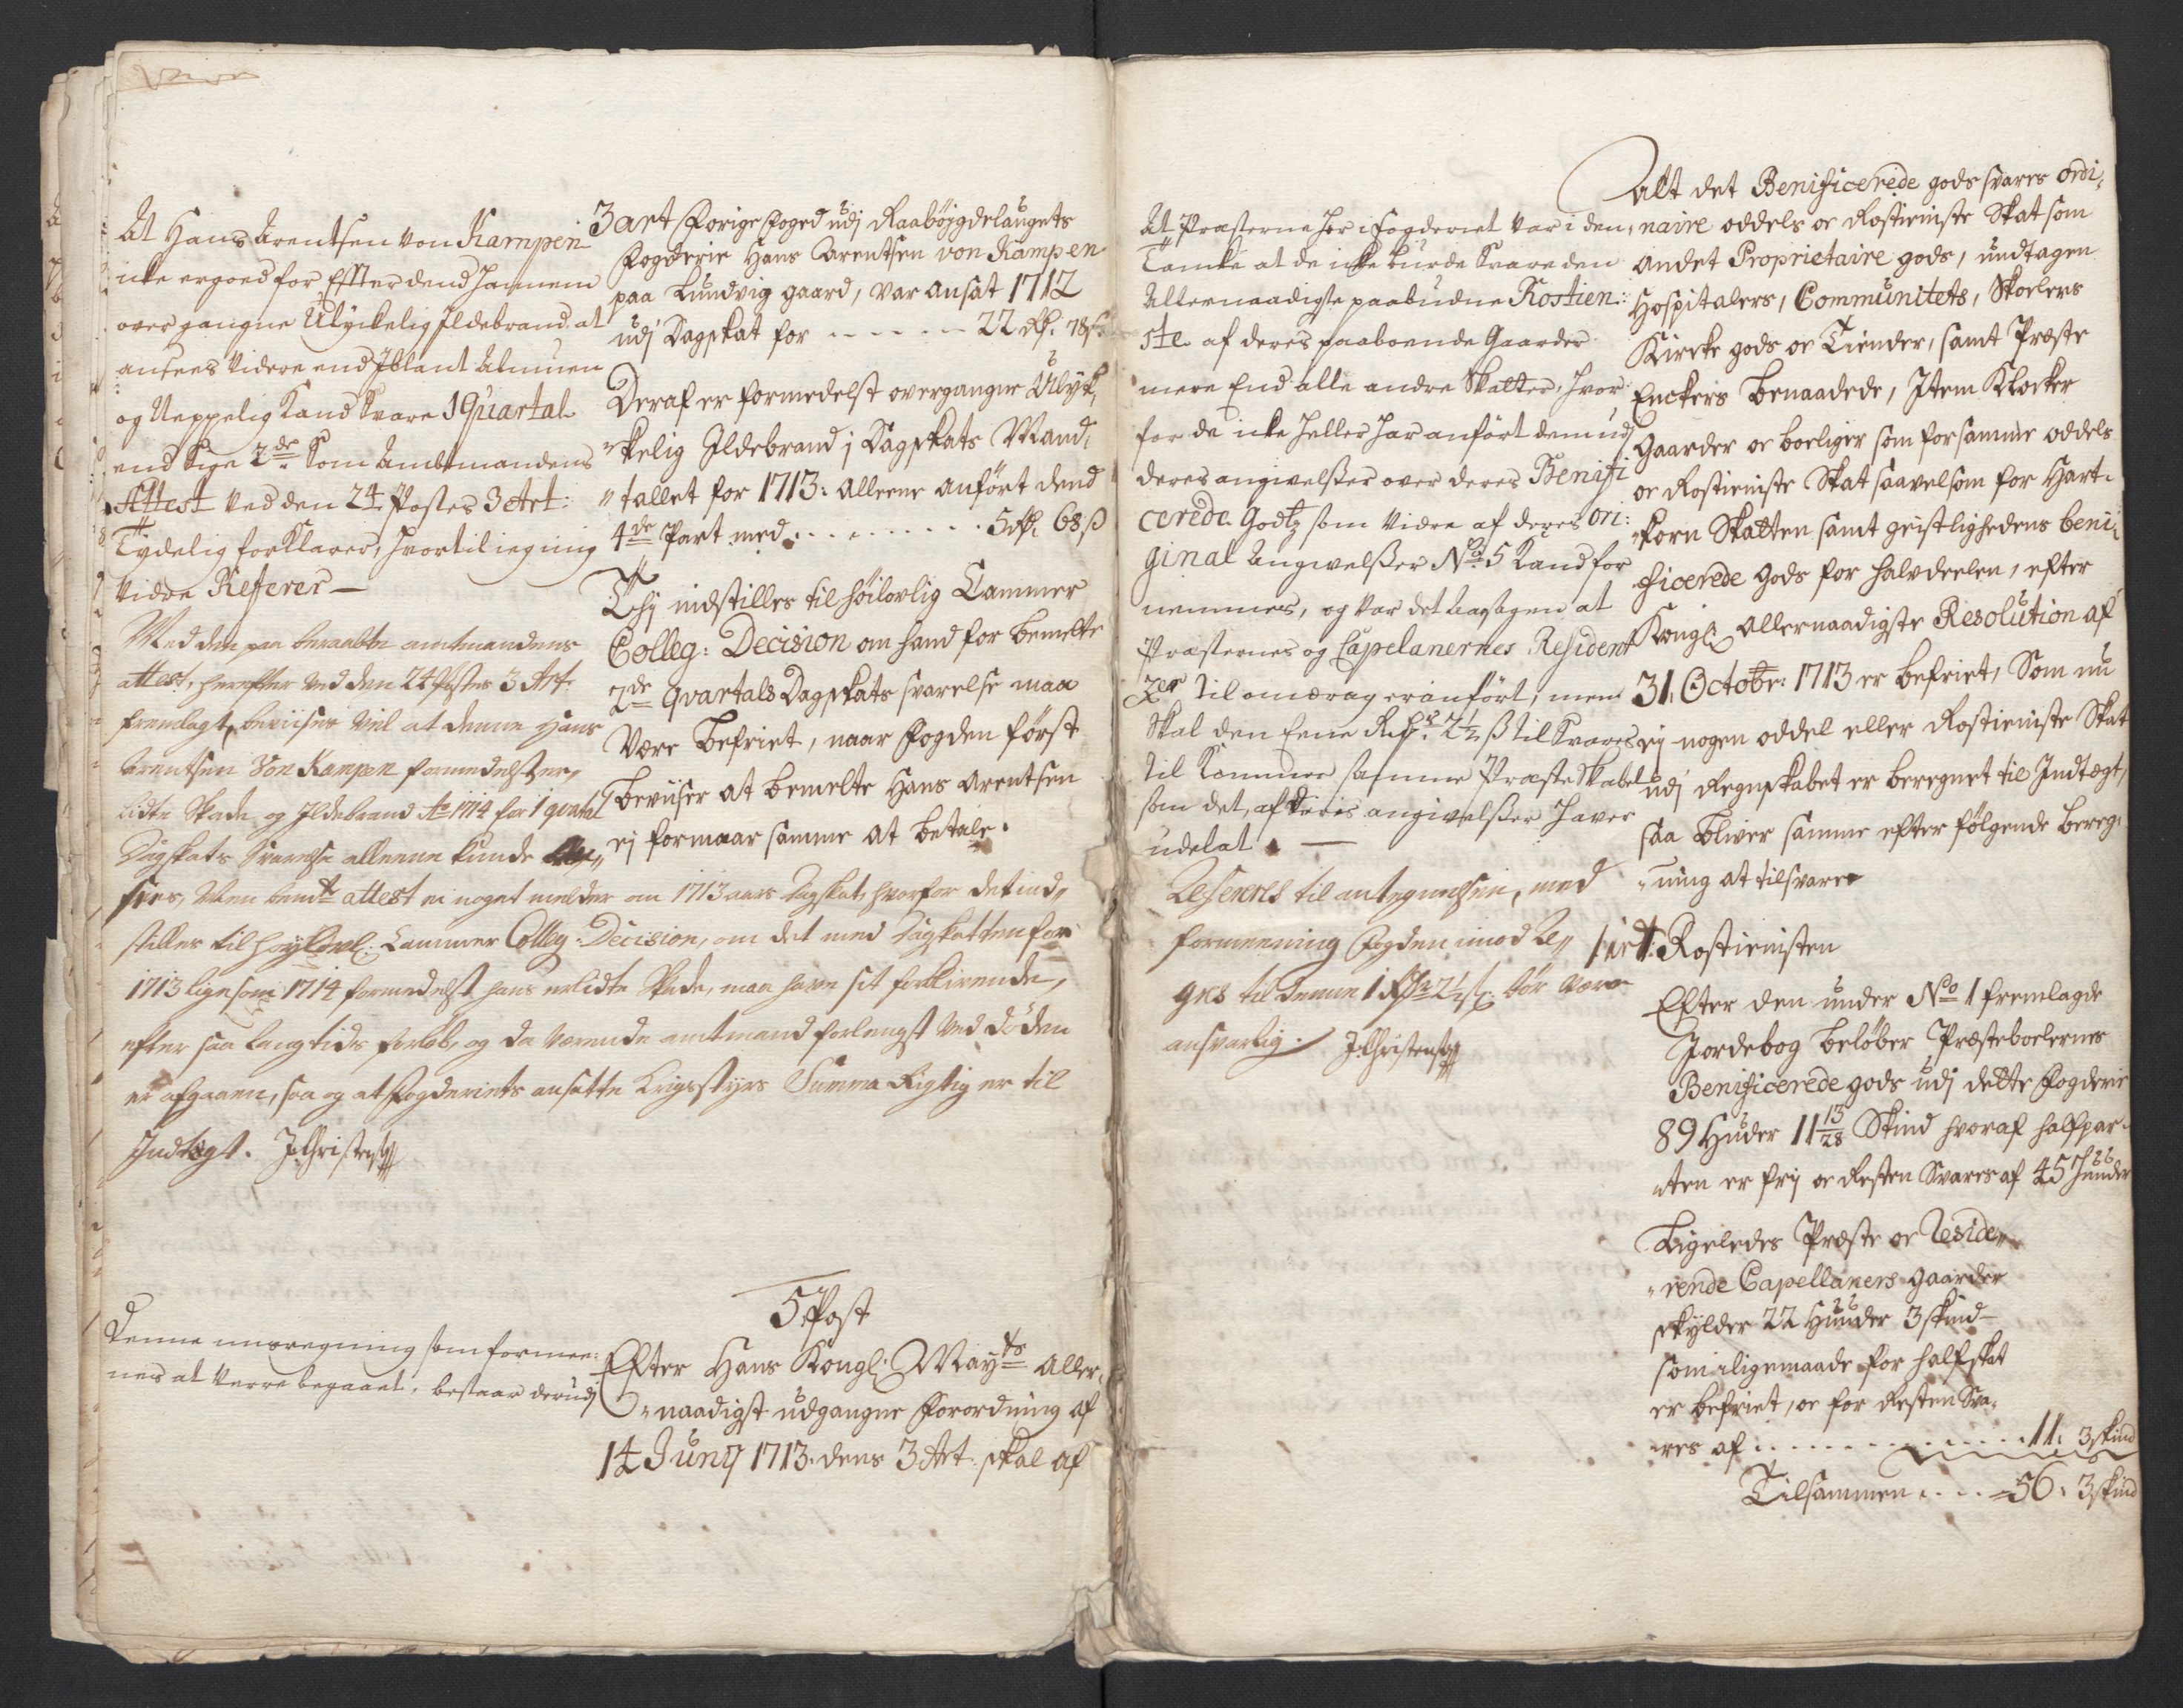 At Hans Arentsen von Kampen
icke er goed for Efter dend hannem
over gangne Ulyckelig Ildebrand at
ansees Videre end Iblant Almuen
og Neppelig Kand Svare 1 Quartal
end Sige 2de Som Amtmandens
Attest ved den 24 Postes 3 Art:
Tydelig forklarer, hvortil ieg mig
Vidre Referer —
Med den paa beraabte amtmandens
attest, herefter ved den 24 Postes 3 Art:
fremlagt, beviises vel at denne Hans
Arentsen Von Kampen formedelst er„
lidte Skade og Ildebrand Ao 1714 for 1 quartal
Dagskats Svarelse alleene kunde
sees, Men bemte attest ei noget melder om 1713 aars Dagskat, hvorfor det ind„
stilles til høylovl: Cammer Colleg: Decision, om det med Dagskatten for
1713 ligesom 1714 formedelst hans erlidte Skade, maa have sit forblivende,
efter saa lang tids forløb, og da værende amtmand forlengst ved døden
er afgaaen, saa og at fogderiets ansatte krigsstyrs Summa Rigtig er til
Indtægt. J: Christens
Denne misregning som formee:
nes at Verre begaaet, bestaar derudj
3 art Forige foged udj Raabøjgdelaugets
Fogderie Hans Arentsen von Kampen
paa Lundvig gaard, var ansat 1712
udj Dagskat for - - - - - - 22 rd. 78 s
Deraf er formedelst overgangne Ulyk„
„kelig Ildebrand j Dagskats Mand„
„tallet for 1713: alleene anført dend
4de Part med . . . . . . . . . 5 rd. 68 ß
Thj indstilles til høilovlig Cammer
Colleg: Decision om hand for bemelte
2de Qvartals Dagskats svarelse maa
Være befriet, naar Fogden først
beviiser at bemelte Hans Arentsen
ej formaar samme at betale.
5 Post
Efter Hans Kongl: Mayts Aller„
„naadigst udgangne Forordning af
14 Junij 1713. dens 3 Art: skal af
At Præsterne her i fogderiet var i den
Tancke at de icke burde Svare den
Allernaadigste paabudne Rostien:
ste af deres paaboende Gaarder
mere End alle andre Skatter, hvor
for de icke heller har anført dem udj
deres angivelßer over deres Benifi
cerede Godtz som Vidre af deres ori:
ginal Angivelßer No 5 Kand for
nemmes, og var det Aarsagen at
Præsternes og Capelanernes Resident
zer til omdrag er anført, men
Skal den Eene Rdr 2½ ß til Svares
til Kommer samme Præsteskabet
som det, af deris angivelßer haver
udelat . —
Refereres til antegnelsen, med
formeening Fogden imod Re„
gres til denne 1 Rdr 2½ s: bør være
ansvarlig. J: Christens
Alt det Benificerede gods svares ordi„
naire oddels oc Rostieniste Skat som
andet Proprietaire gods, undtagen
Hospitalers, Communitets, Skolers
Kircke gods oc Tiender, samt Præste
Enckers benaadede, Item Klocker
Gaarder oc boeliger som for samme oddels
oc Rostieniste Skat saavelsom for Hart„
„korn Skatten samt geistlighedens beni„
ficerede Gods for halvdeelen, efter
Kongl: Allernaadigste Resolution af
31. Octobr: 1713 er befriet, Som nu
ej nogen oddel eller Rostieniste Skat
udj Regnskabet er beregnet til Indtægt,
saa bliver samme efter følgende bereg„
„ning at tilsvare
1 art. Rostienisten
Efter den under No 1 fremlagde
Jordebog beløber Præsteboelernes
Benificerede gods udj dette Fogderie
89 Huder 11 13/28 Skind hvoraf halfpar„
„ten er frj oc Resten Svares af 45 huuder
Ligeledes Præste oc Reside„
„rende Capellaners gaarder
skylder 22 Huuder 3 skind
som iligemaade for halfskat
er befriet, oc for Resten Sva„
„res af . . . . . . . . . . . . 11: 3 skind
Tilsammen . . . . 56: 3 skind